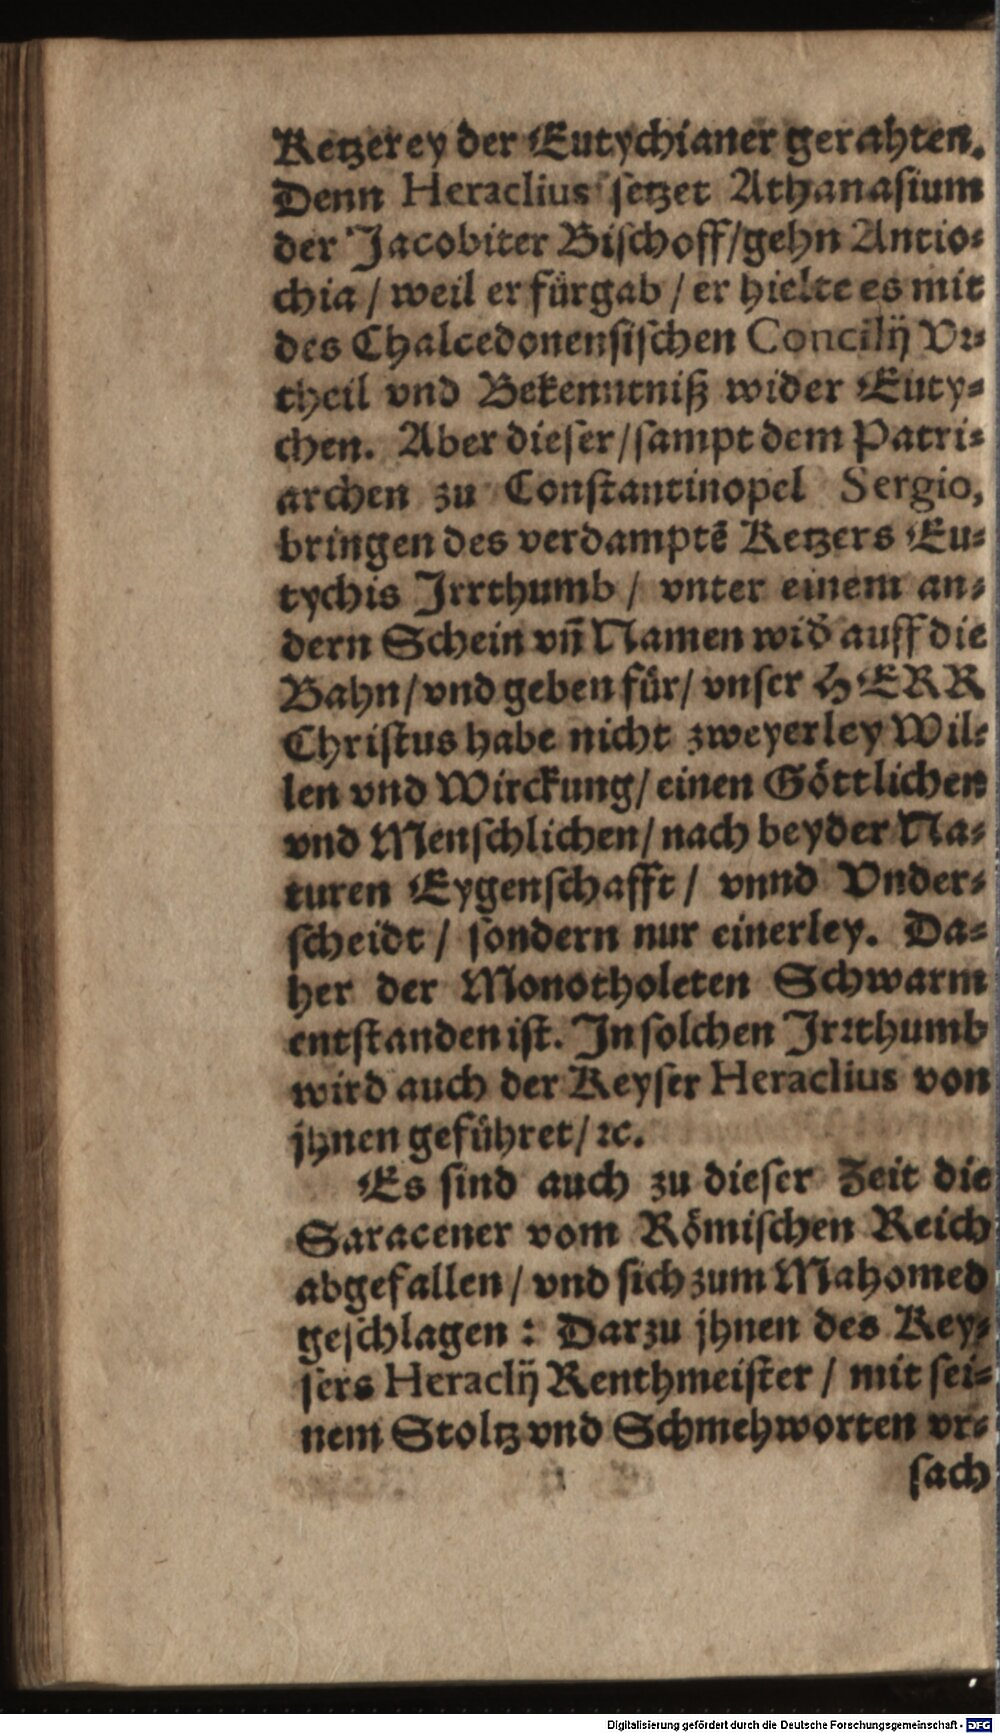 Ketzerey der Eutychianer gerahten.
Denn Heraclius setzet Athanasium
der Jacobiter Bischoff/gehn Antio-
chia / weil er fürgab / er hielte es mit
des Chalcedonensischen Concilij Vr-
theil vnd Bekenntniß wider Euty-
chen. Aber dieser/sampt dem Patri-
archen zu Constantinopel Sergio,
bringen des verdamptē Ketzers Eu-
tychis Irrthumb / vnter einem an-
dern Schein vn̄ Namen wid̄ auff die
Bahn/vnd geben für/ vnser HERR
Christus habe nicht zweyerley Wil-
len vnd Wirckung/ einen Göttlichen
vnd Menschlichen/ nach beyder Na-
turen Eygenschafft / vnnd Vnder-
scheidt / sondern nur einerley. Da-
her der Monotholeten Schwarm
entstanden ist. In solchen Irrthumb
wird auch der Keyser Heraclius von
jhnen geführet/ ꝛc.
Es sind auch zu dieser Zeit die
Saracener vom Römischen Reich
abgefallen / vnd sich zum Mahomed
geschlagen : Darzu jhnen des Key-
sers Heraclij Renthmeister / mit sei-
nem Stoltz vnd Schmehworten vr-
sach
Digitalisierung gefördert durch die Deutsche Forschungsgemeinschaft - DFG